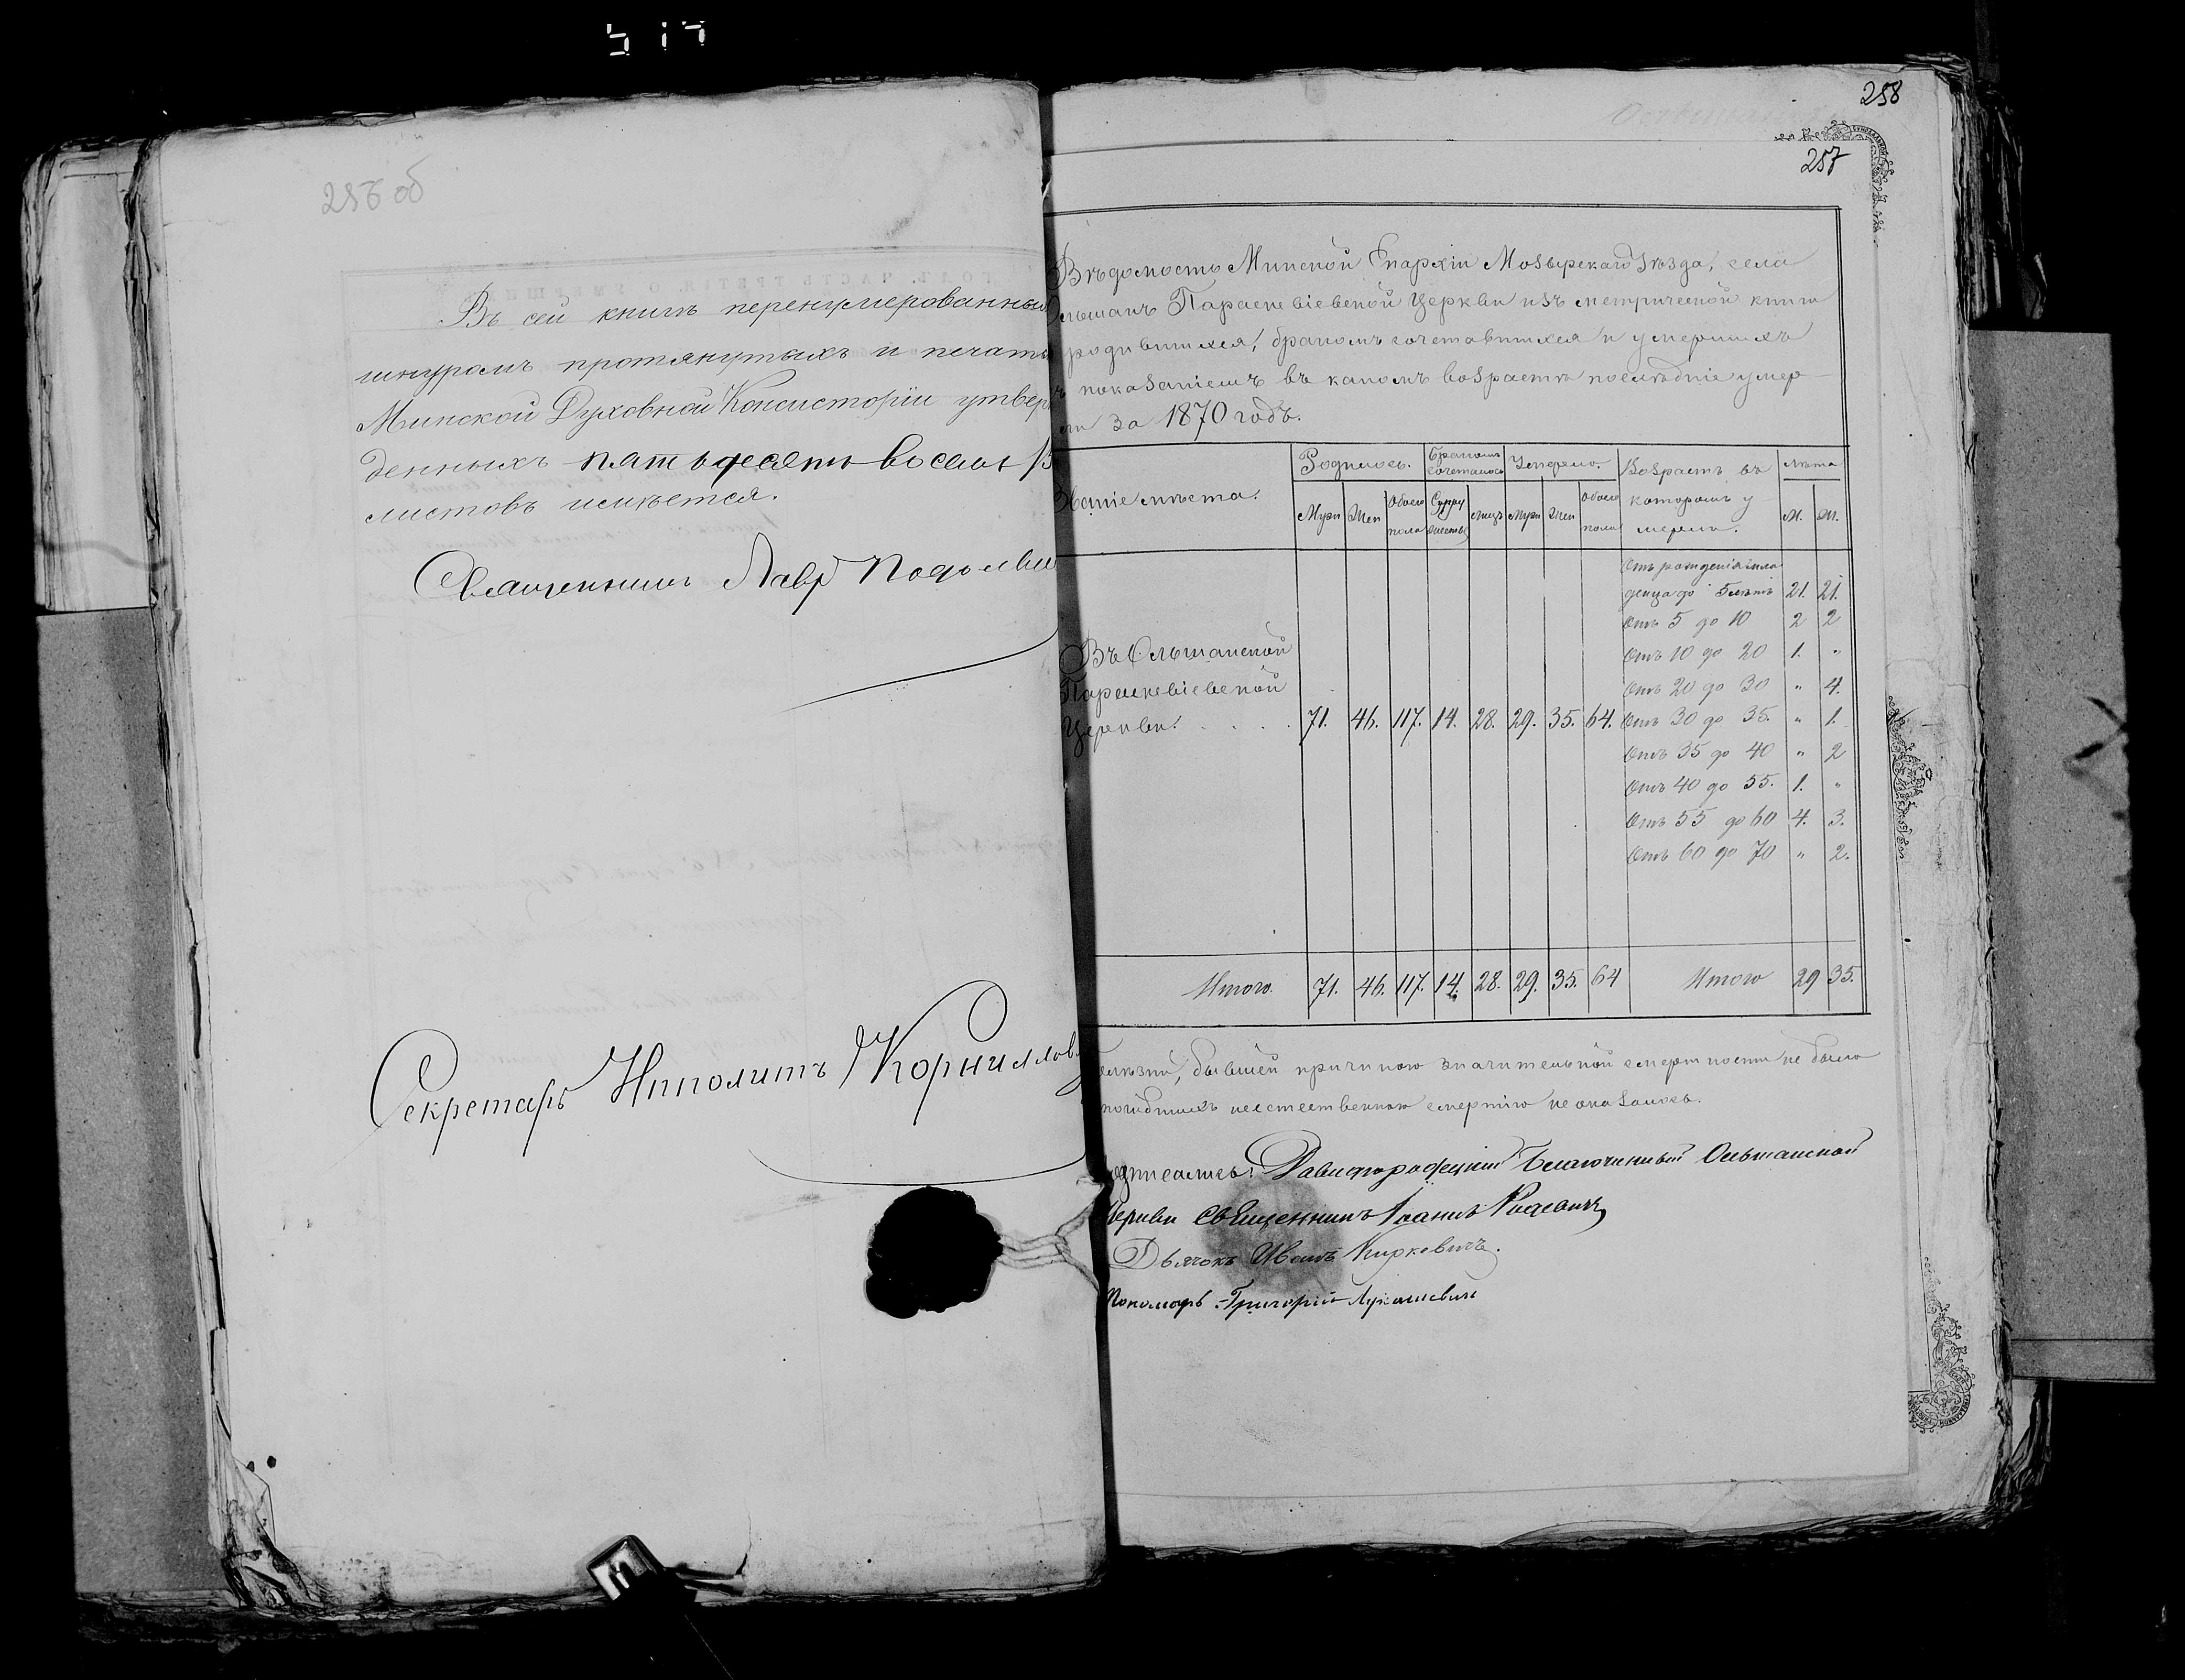 256 об
Въ сей книгѣ перенумерованныхъ
шнуромъ протянутыхъ и печатью
Минской Духовной Консисторіи утверж
денныхъ пятьдесятъ восемь
листовъ имѣется.
Священникъ Лавр
Секретарь Ипполитъ Корнилов
258
257
Вѣдомость Минской Епархіи Мозырскаго Уѣзда, села
льшанъ Параскевіевской Церкви изъ метрической книги
родившихся, бракомъ сочетавшихся и умершихъ
показаніемъ въ какомъ возрастѣ послѣдніе умер-
ли за 1870 годъ.
Званіе мѣста. Родилось. Бракомъ сочеталось Умерло. Возрастъ въ которомъ умерли. Лѣта
Муж Жен Обоего пола Супружествъ лицъ Муж Жен Обоего пола М. Ж.
Отъ рожденія мла
денца до 5 лѣтъ 21. 21.
Отъ 5 до 10 2 2
Отъ 10 до 20 1. "
Отъ 20 до 30 " 4.
Въ Ольшанской
Параскевіевской
Церкви. 71. 46. 117. 14. 28. 29. 35. 64. Отъ 30 до 35. " 1.
Отъ 35 до 40 " 2
Отъ 40 до 55. 1. "
Отъ 55 до 60 4. 3.
Отъ 60 до 70 " 2.
Итого. 71. 46. 117. 14. 28. 29. 35. 64 Итого 29 35.
олѣзни, бывшей причиною значительной смертности не было
погибшихъ неестественною смертію не оказалось.
одписались: Давидгородецкій Благочинный Ольшанской
Церкви Священникъ Іоаннъ
Дьячокъ Иванъ Киркевичъ.
Пономарь Григорій Лукашевич